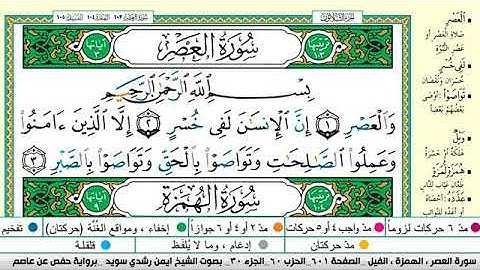 سُورَةُ العَصْرِ
بِسْمِ ٱللَّهِ ٱلرَّحْمَٰنِ ٱلرَّحِيمِ
وَٱلْعَصْرِ ١ إِنَّ ٱلْإِنسَٰنَ لَفِى خُسْرٍ ٢ إِلَّا ٱلَّذِينَ ءَامَنُوا۟
وَعَمِلُوا۟ ٱلصَّٰلِحَٰتِ وَتَوَاصَوْا۟ بِٱلْحَقِّ وَتَوَاصَوْا۟ بِٱلصَّبْرِ ٣
سُورَةُ الهُمَزَةِ
العَصْرِ
صلاة العصر أو
عصر النبوة
لَفِى خُسْرٍ
خسران ونقصان
تَوَاصَوْا
أوصى
بعضهم بعضا
وَيْلٌ
هُمَزَةٍ لُمَزَةٍ
عَدَّدَهُ
مدّ ٦ حركات لزوماً
مدّ واجب ٤ أو ٥ حركات
مدّ ٢ أو ٤ أو ٦ جوازاً
إخفاء، ومواقع الغُنَّة (حركتان)
تفخيم
مدّ حركتان
إدغام، وما لا يُلفَظ
قلقلة
سورة العصر ، الهمزة ، الفيل الصفحة ٦٠١ الحزب ٦٠ الجزء ٣٠ بصوت الشيخ ايمن رشدي سويد برواية حفص عن عاصم